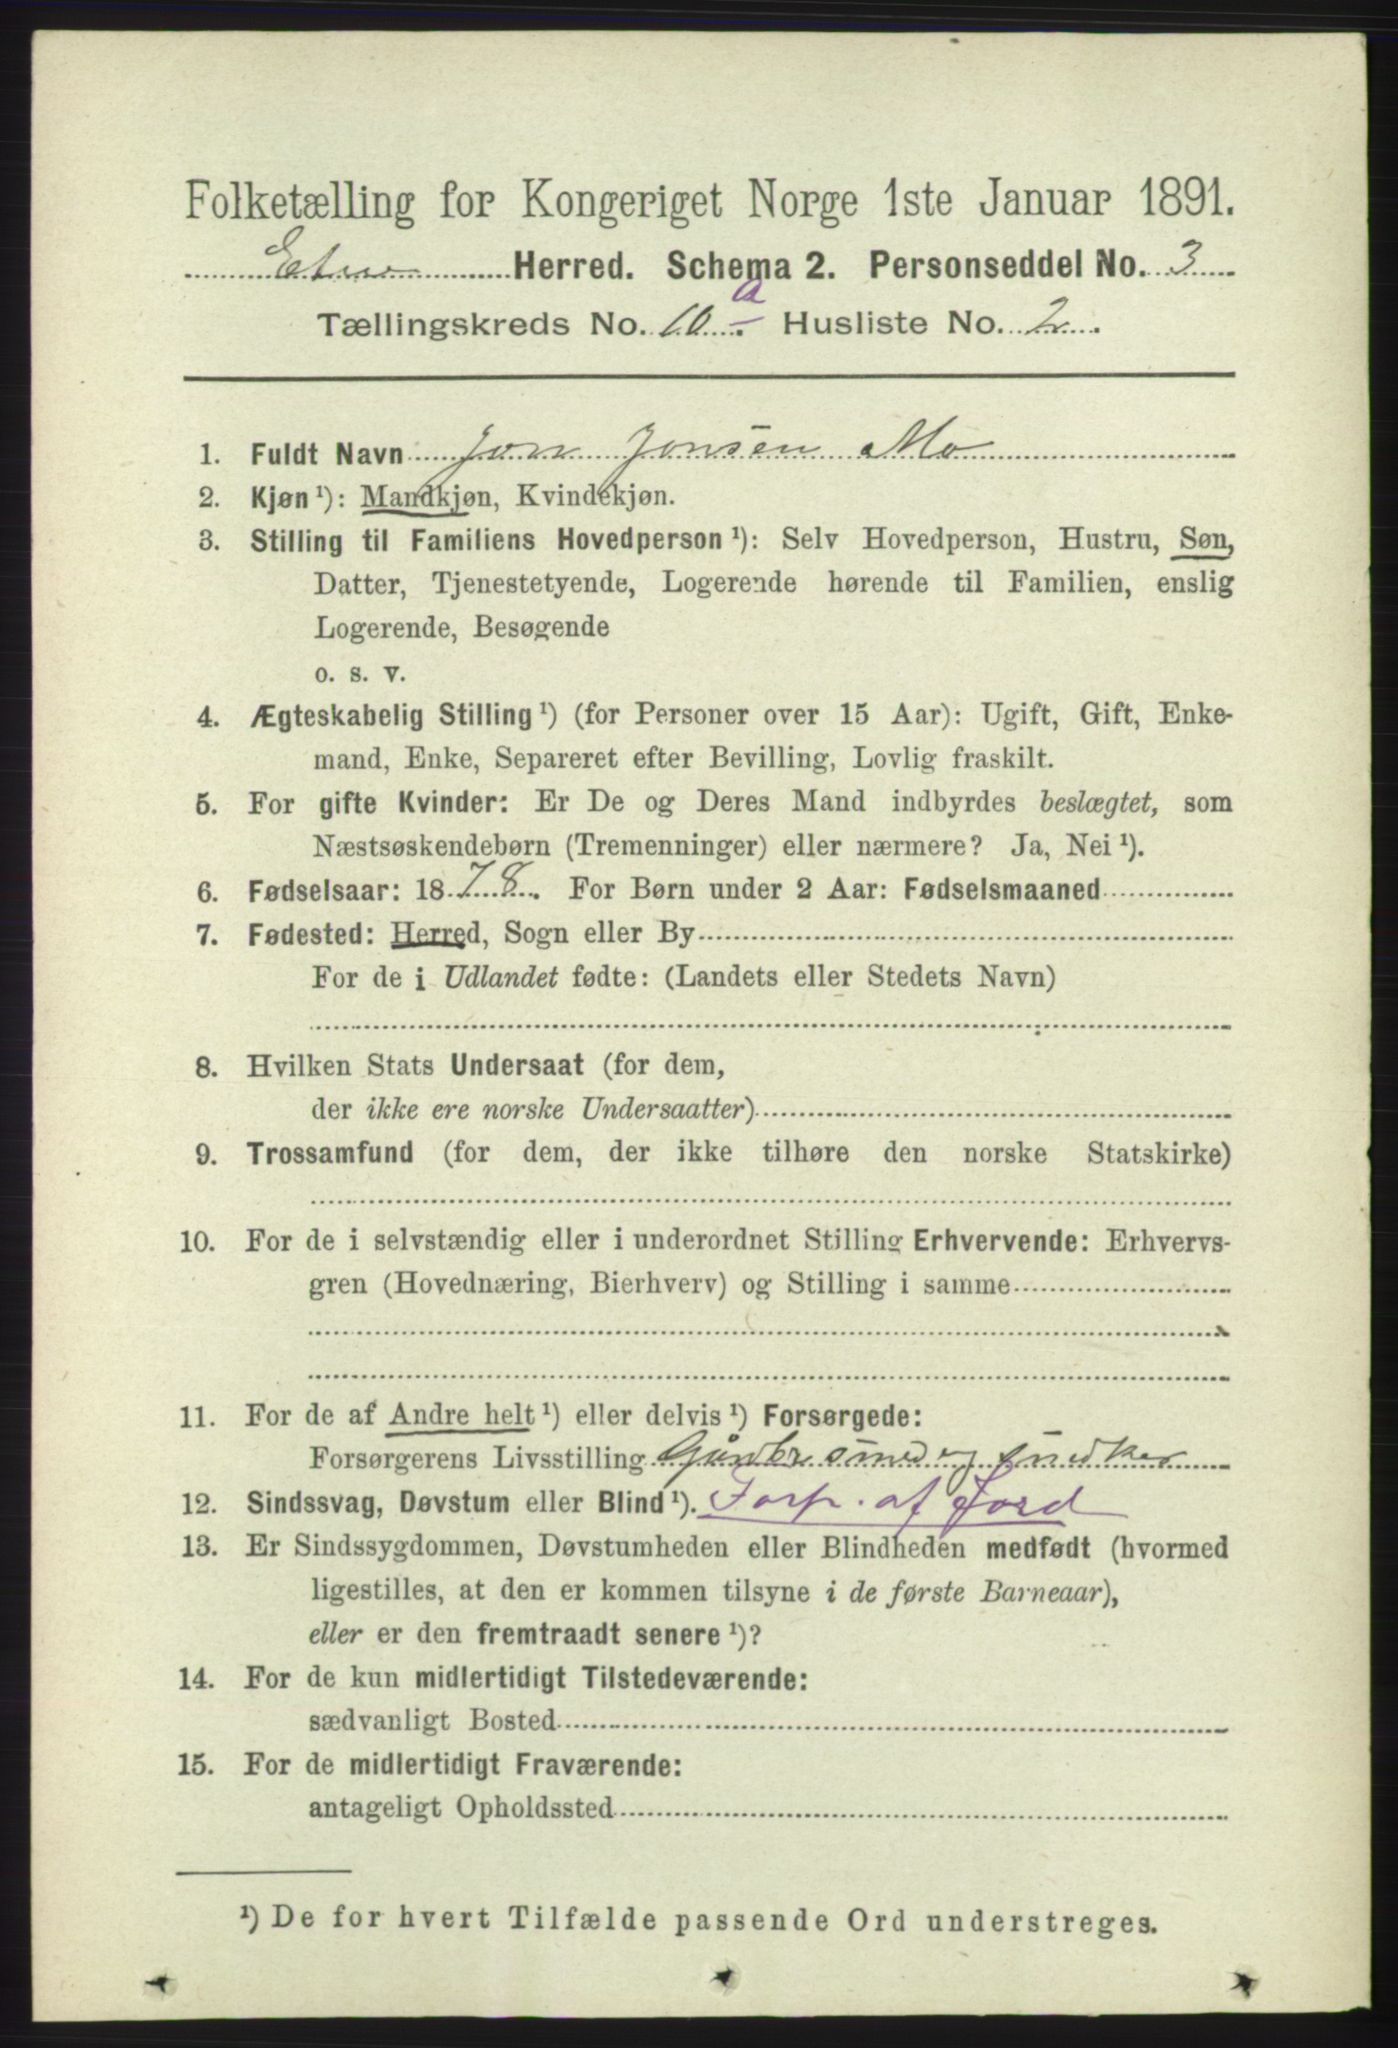 Folketælling for Kongeriget Norge 1ste Januar 1891.
Etne Herred. Schema 2. Personseddel No. 3
a
Tællingskreds No. 10 Husliste No. 2.
1. Fuldt Navn Jon Jonsen Mo
2. Kjøn ¹): Mandkjøn, Kvindekjøn.
3. Stilling til Familiens Hovedperson ¹): Selv Hovedperson, Hustru, Søn,
Datter, Tjenestetyende, Logerende hørende til Familien, enslig
Logerende, Besøgende
o. s. v.
4. Ægteskabelig Stilling ¹) (for Personer over 15 Aar): Ugift, Gift, Enke-
mand, Enke, Separeret efter Bevilling, Lovlig fraskilt.
5. For gifte Kvinder: Er De og Deres Mand indbyrdes beslægtet, som
Næstsøskendebørn (Tremenninger) eller nærmere? Ja, Nei ¹).
6. Fødselsaar: 1878. For Børn under 2 Aar: Fødselsmaaned
7. Fødested: Herred, Sogn eller By
For de i Udlandet fødte: (Landets eller Stedets Navn)
8. Hvilken Stats Undersaat (for dem,
der ikke ere norske Undersaatter)
9. Trossamfund (for dem, der ikke tilhøre den norske Statskirke)
10. For de i selvstændig eller i underordnet Stilling Erhvervende: Erhvervs-
gren (Hovednæring, Bierhverv) og Stilling i samme
11. For de af Andre helt ¹) eller delvis ¹) Forsørgede:
Forsørgerens Livsstilling smed og snedker
12. Sindssvag, Døvstum eller Blind ¹). Forp. af Jord
13. Er Sindssygdommen, Døvstumheden eller Blindheden medfødt (hvormed
ligestilles, at den er kommen tilsyne i de første Barneaar),
eller er den fremtraadt senere ¹)?
14. For de kun midlertidigt Tilstedeværende:
sædvanligt Bosted
15. For de midlertidigt Fraværende:
antageligt Opholdssted
¹) De for hvert Tilfælde passende Ord understreges.